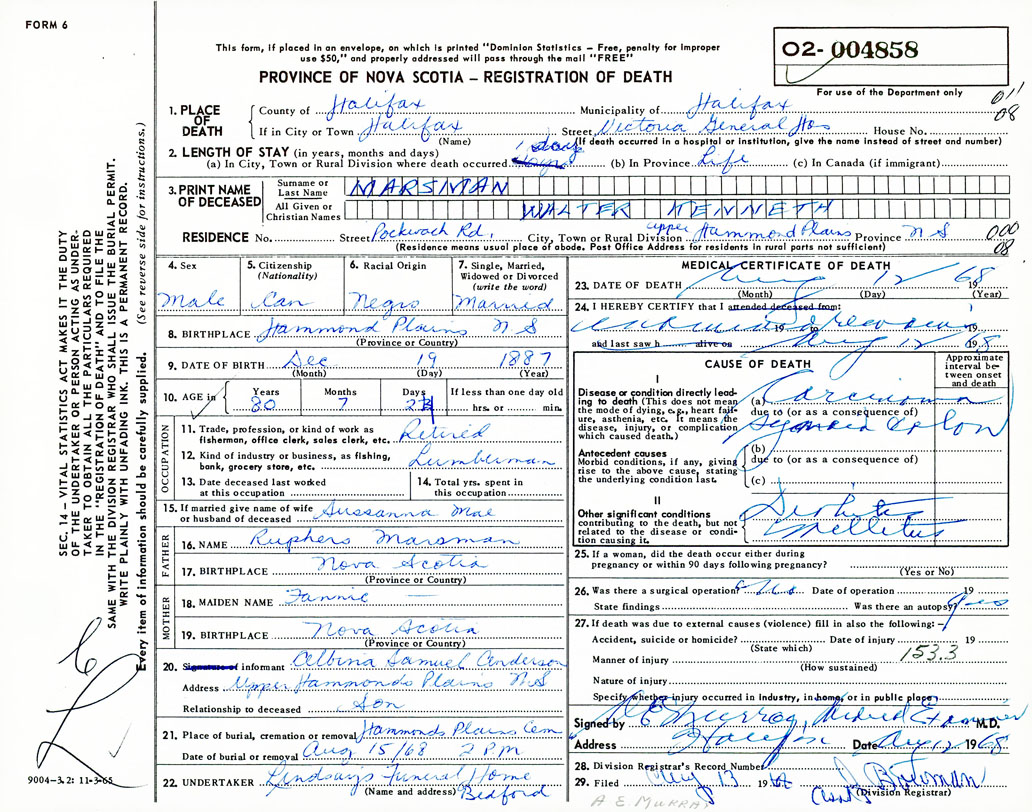 FORM 6
This form, if placed in an envelope, on which is printed "Dominion Statistics – Free, penalty for improper
use $50," and properly addressed will pass through the mail "FREE"
PROVINCE OF NOVA SCOTIA – REGISTRATION OF DEATH
O2- 004858
For use of the Department only
011
08
1. PLACE OF DEATH
County of Halifax Municipality of Halifax
If in City or Town Halifax Street Victoria General Hos House No.
(Name) (If death occurred in a hospital or institution, give the name instead of street and number)
2. LENGTH OF STAY (in years, months and days)
(a) In City, Town or Rural Division where death occurred 1 day (b) In Province Life (c) In Canada (if immigrant)
3. PRINT NAME OF DECEASED
Surname or Last Name MARSMAN
All Given or Christian Names WALTER KENNETH
RESIDENCE No. Street Pockwock Rd. City, Town or Rural Division Upper Hammond Plains Province N S
000
08
(Residence means usual place of abode. Post Office Address for residents in rural parts not sufficient)
4. Sex Male
5. Citizenship (Nationality) Can
6. Racial Origin Negro
7. Single, Married, Widowed or Divorced (write the word) Married
8. BIRTHPLACE Hammond Plains N S
(Province or Country)
9. DATE OF BIRTH Dec 19 1887
(Month) (Day) (Year)
10. AGE in Years 80 Months 7 Days If less than one day old hrs. or min.
OCCUPATION
11. Trade, profession or kind of work as fisherman, office clerk, sales clerk, etc. Retired
12. Kind of industry or business, as fishing, bank, grocery store, etc. Lumberman
13. Date deceased last worked at this occupation
14. Total yrs. spent in this occupation
15. If married give name of wife or husband of deceased Sussanna Mae
FATHER
16. NAME Ruphers Marsman
17. BIRTHPLACE Nova Scotia
(Province or Country)
MOTHER
18. MAIDEN NAME Fannie —
19. BIRTHPLACE Nova Scotia
(Province or Country)
20. Signature of informant Albina Samuel Anderson
Address Upper Hammonds Plains N S
Relationship to deceased Son
21. Place of burial, cremation or removal Hammonds Plains Cem
Date of burial or removal Aug 15/68 2 PM
22. UNDERTAKER Lindsay's Funeral Home
(Name and address) Bedford
MEDICAL CERTIFICATE OF DEATH
23. DATE OF DEATH Aug 12 1968
(Month) (Day) (Year)
24. I HEREBY CERTIFY that I attended deceased from:
19 to 19
and last saw h alive on Aug 12 1968
CAUSE OF DEATH
Approximate interval between onset and death
I
Disease or condition directly leading to death (This does not mean the mode of dying, e.g., heart failure, asthenia, etc. It means the disease, injury, or complication which caused death.)
(a) Carcinoma
due to (or as a consequence of)
Sigmoid Colon
Antecedent causes
Morbid conditions, if any, giving rise to the above cause, stating the underlying condition last.
(b)
due to (or as a consequence of)
(c)
II
Other significant conditions contributing to the death, but not related to the disease or condition causing it.
Diabetes
Mellitus
25. If a woman, did the death occur either during pregnancy or within 90 days following pregnancy?
(Yes or No)
26. Was there a surgical operation? No Date of operation 19
State findings Was there an autopsy? Yes
27. If death was due to external causes (violence) fill in also the following:–
Accident, suicide or homicide? Date of injury 19
(State which) 153.3
Manner of injury
(How sustained)
Nature of injury
Specify whether injury occurred in industry, in home, or in public place
Signed by A E Murray, M.D.
Address Halifax Date Aug 12 1968
28. Division Registrar's Record Number
29. Filed Aug 13 19 68 Bowman
(Division Registrar)
A E MURRAY
SEC. 14 – VITAL STATISTICS ACT MAKES IT THE DUTY
OF THE UNDERTAKER OR PERSON ACTING AS UNDER-
TAKER TO OBTAIN ALL THE PARTICULARS REQUIRED
IN THE "REGISTRATION OF DEATH" AND TO FILE THE
SAME WITH THE DIVISION REGISTRAR WHO SHALL ISSUE THE BURIAL PERMIT.
WRITE PLAINLY WITH UNFADING INK. THIS IS A PERMANENT RECORD.
Every item of information should be carefully supplied. (See reverse side for instructions.)
9004-3.2: 11-3-65